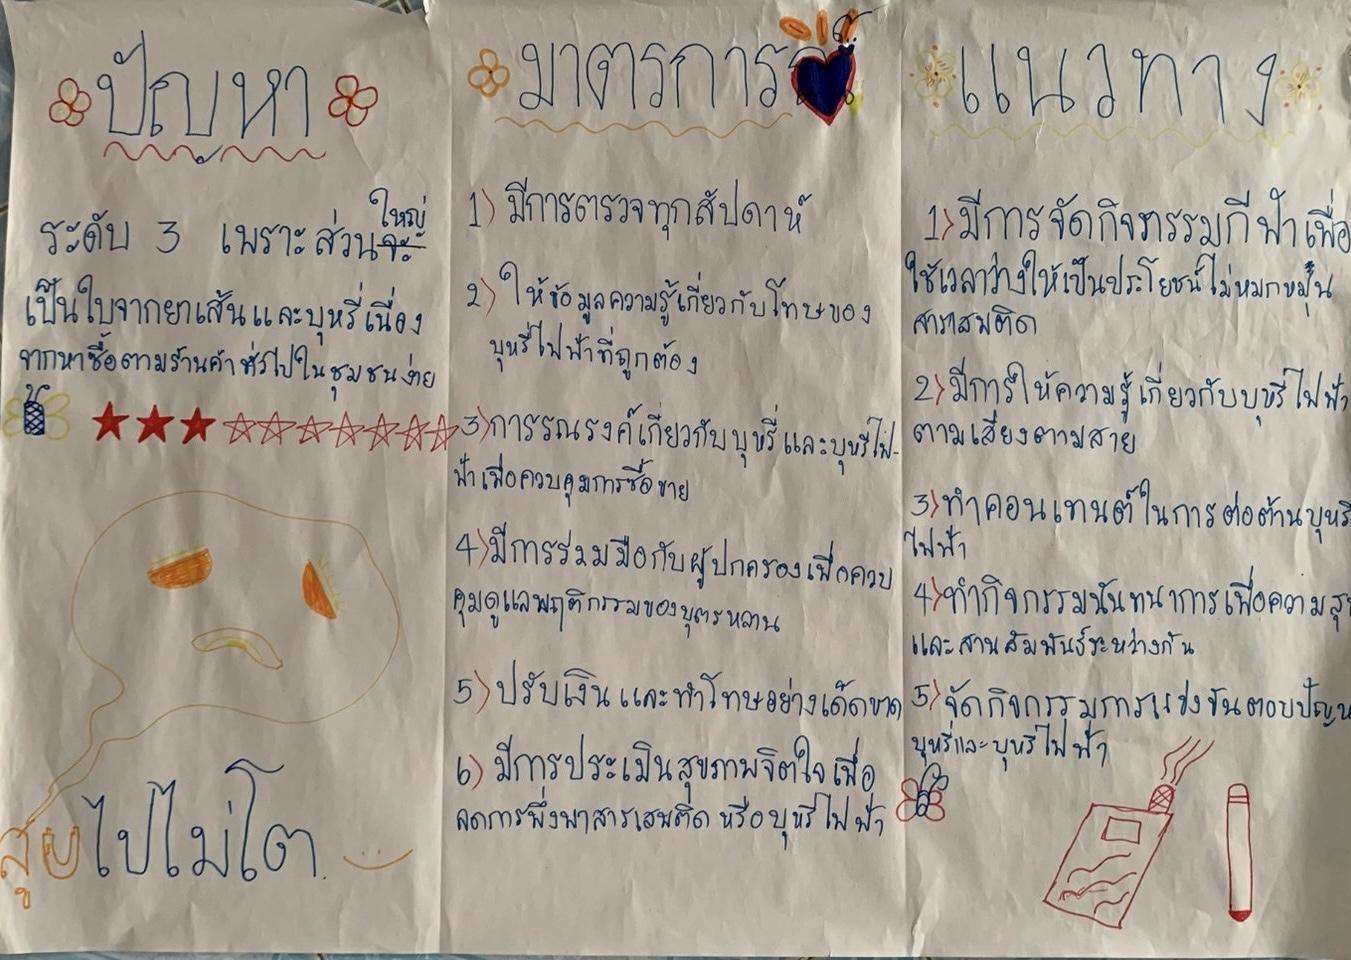 ปัญหา
ระดับ 3 เพราะส่วนใหญ่
เป็นใบจากยาเส้นและบุหรี่เนื่อง
จากหาซื้อตามร้านค้าทั่วไปในชุมชนง่าย
สูบไปไม่โต
มาตรการ
1) มีการตรวจทุกสัปดาห์
2) ให้ข้อมูลความรู้เกี่ยวกับโทษของ
บุหรี่ไฟฟ้าที่ถูกต้อง
3) การรณรงค์เกี่ยวกับบุหรี่และบุหรี่ไฟ-
ฟ้าเพื่อควบคุมการซื้อขาย
4) มีการร่วมมือกับผู้ปกครองเพื่อควบ
คุมดูแลพฤติกรรมของบุตรหลาน
5) ปรับเงินและทำโทษอย่างเด็ดขาด
6) มีการประเมินสุขภาพจิตใจเพื่อ
ลดการพึ่งพาสารเสพติด หรือบุหรี่ไฟฟ้า
แนวทาง
1) มีการจัดกิจกรรมกีฬาเพื่อ
ใช้เวลาว่างให้เป็นประโยชน์ไม่หมกหมุ่น
สารเสพติด
2) มีการให้ความรู้เกี่ยวกับบุหรี่ไฟฟ้า
ตามเสียงตามสาย
3) ทำคอนเทนต์ในการต่อต้านบุหรี่
ไฟฟ้า
4) ทำกิจกรรมนันทนาการเพื่อความสุ
และสานสัมพันธ์ระหว่างกัน
5) จัดกิจกรรมการแข่งขันตอบปัญห
บุหรี่และบุหรี่ไฟฟ้า